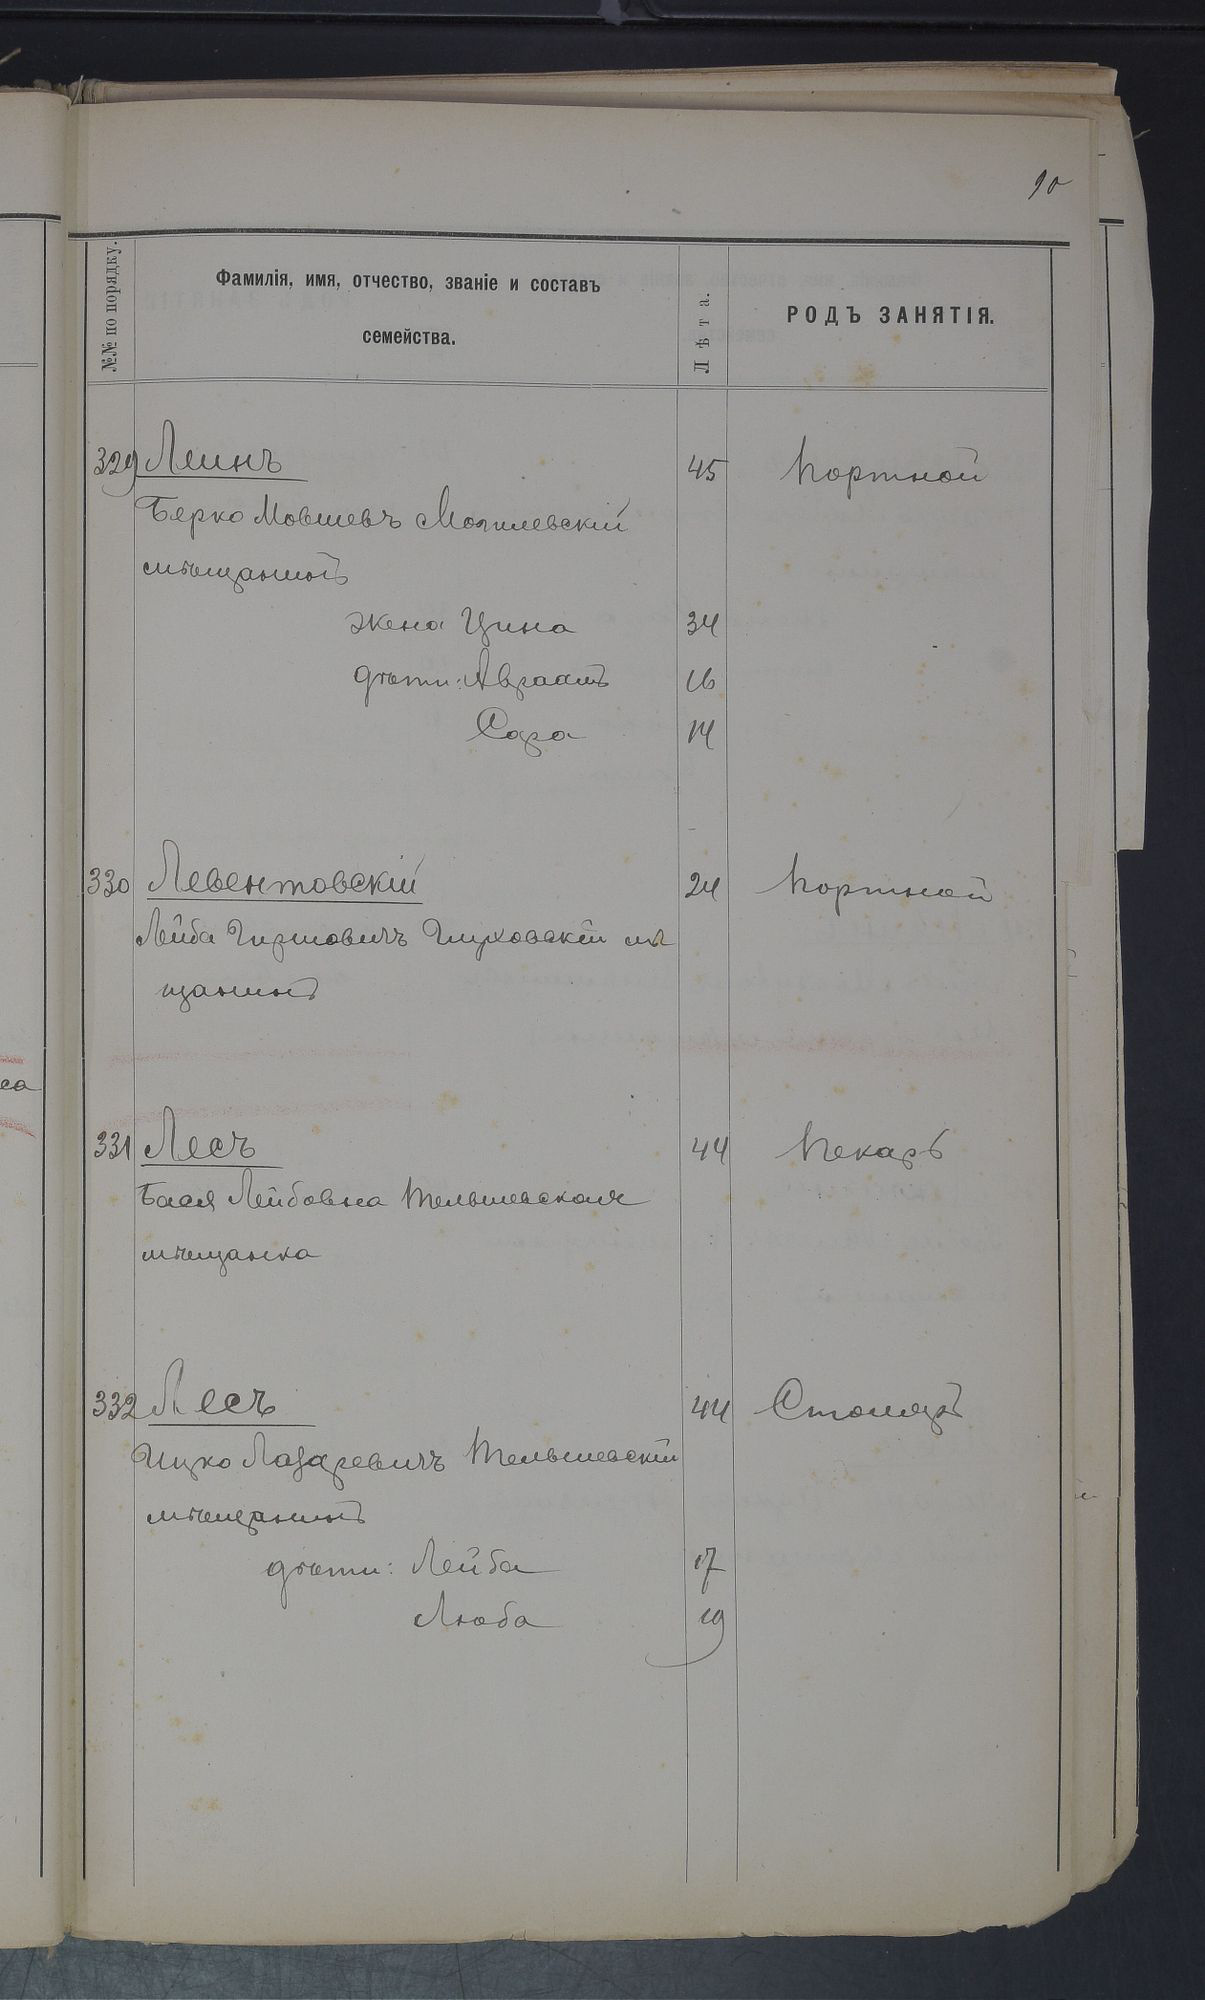 90
№№ по порядку.
Фамилія, имя, отчество, званіе и составъ
семейства.
Лѣта.
РОДЪ ЗАНЯТІЯ.
329 Леинъ 45 Портной
Берко Мовшевъ Могилевскій
мѣщанинъ
жена Цина 34
дѣти: Авраамъ 16
Сара 14
330 Левентовскій 24 Портной
Лейба Гиршовичъ Глуховскій мѣ
щанинъ
331 Лесъ 44 Пекарь
Бася Лейбовна Тельшевская
мѣщанка
332 Лесъ 44 Столяръ
Ицко Лазаревичъ Тельшевскій
мѣщанинъ
дѣти: Лейба 17
Люба 19